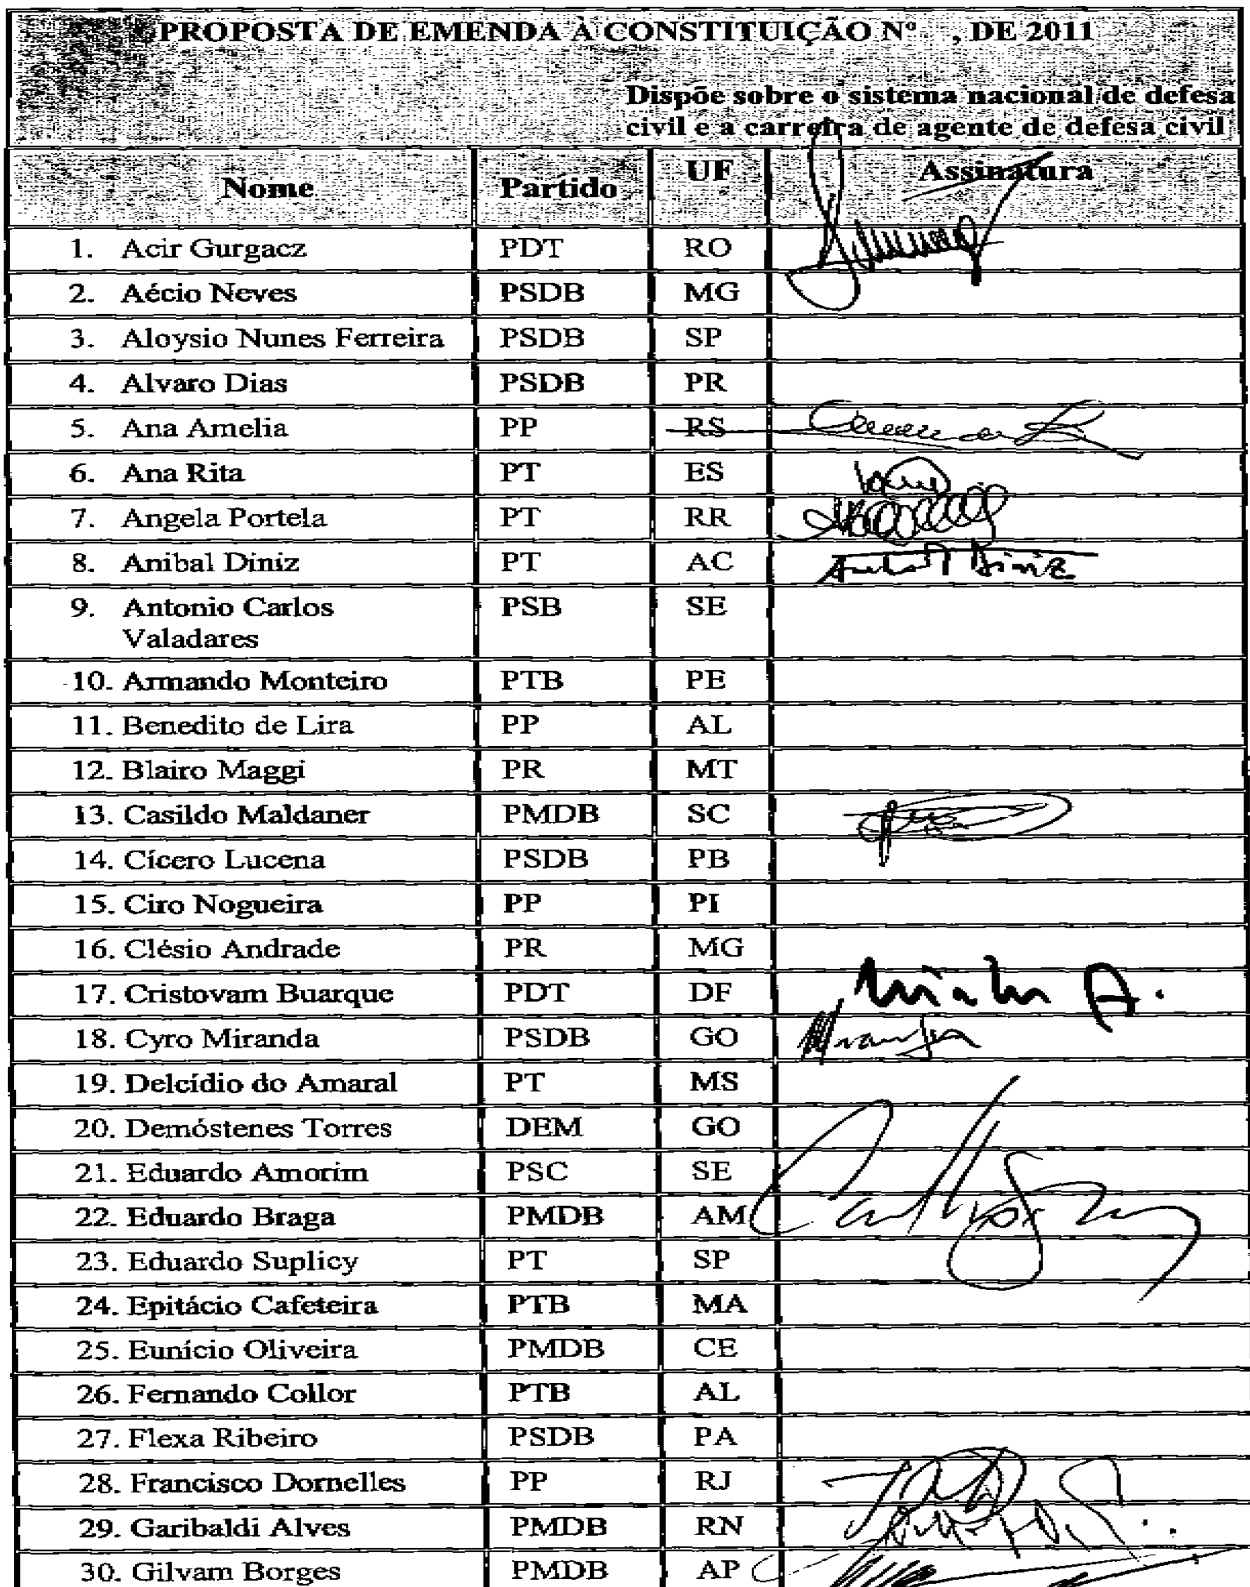 PROPOSTA DE EMENDA À CONSTITUIÇÃO Nº , DE 2011
Dispõe sobre o sistema nacional de defesa
civil e a carreira de agente de defesa civil
Nome Partido UF Assinatura
1. Acir Gurgacz PDT RO
2. Aécio Neves PSDB MG
3. Aloysio Nunes Ferreira PSDB SP
4. Alvaro Dias PSDB PR
5. Ana Amelia PP RS
6. Ana Rita PT ES
7. Angela Portela PT RR
8. Anibal Diniz PT AC Anibal Diniz
9. Antonio Carlos PSB SE
Valadares
10. Armando Monteiro PTB PE
11. Benedito de Lira PP AL
12. Blairo Maggi PR MT
13. Casildo Maldaner PMDB SC
14. Cícero Lucena PSDB PB
15. Ciro Nogueira PP PI
16. Clésio Andrade PR MG
17. Cristovam Buarque PDT DF
18. Cyro Miranda PSDB GO
19. Delcídio do Amaral PT MS
20. Demóstenes Torres DEM GO
21. Eduardo Amorim PSC SE
22. Eduardo Braga PMDB AM
23. Eduardo Suplicy PT SP
24. Epitácio Cafeteira PTB MA
25. Eunício Oliveira PMDB CE
26. Fernando Collor PTB AL
27. Flexa Ribeiro PSDB PA
28. Francisco Dornelles PP RJ
29. Garibaldi Alves PMDB RN
30. Gilvam Borges PMDB AP